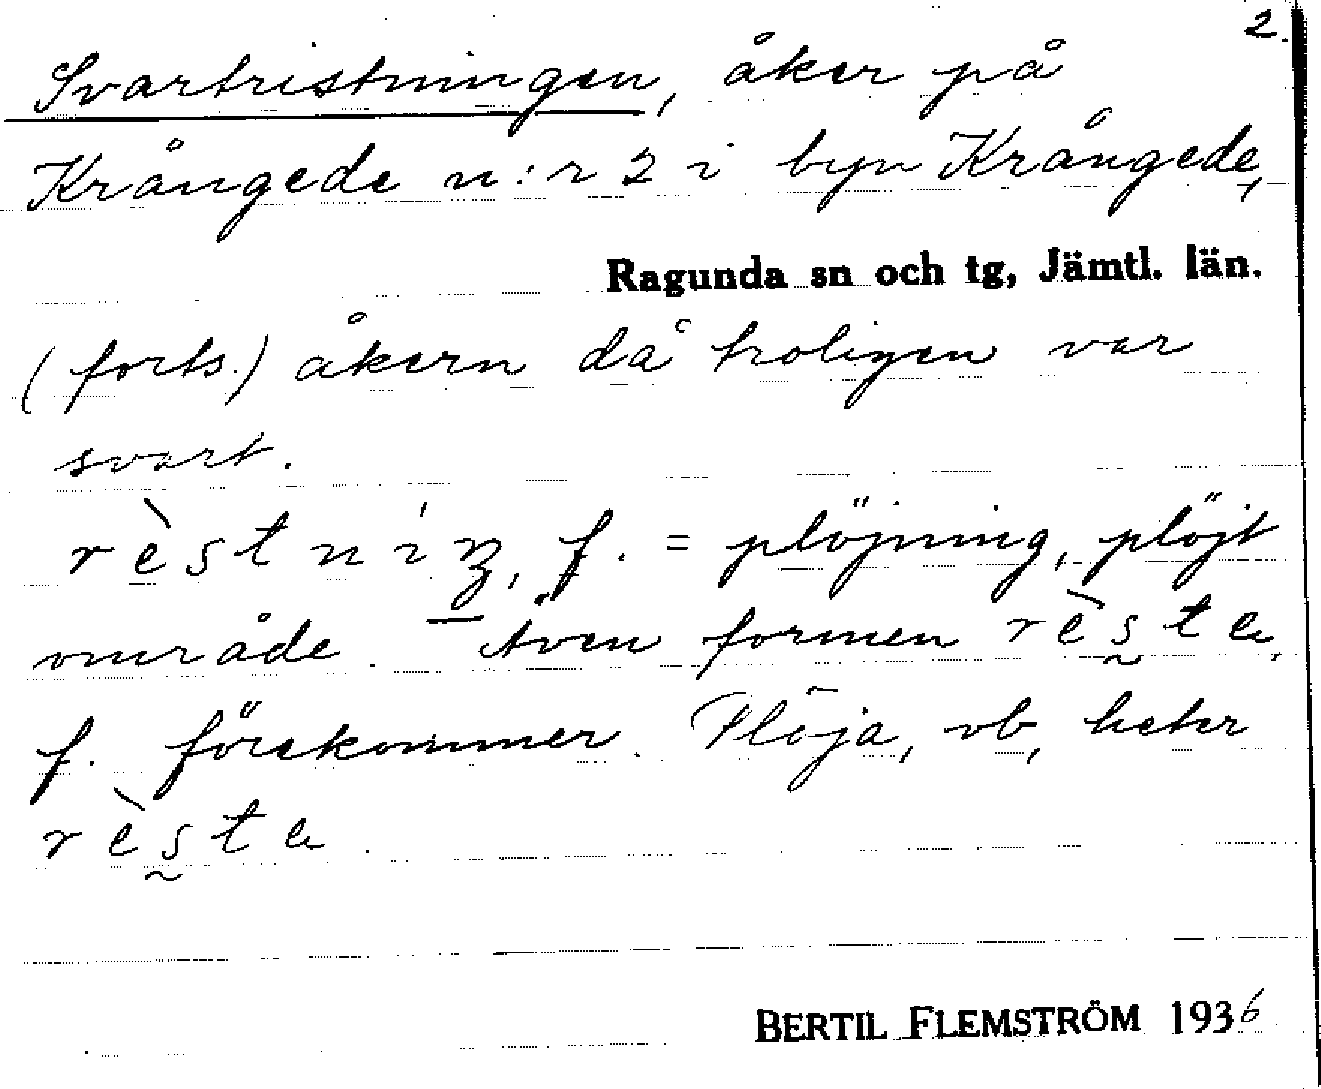 2.
Svartristningen, åker på
Krångede n:r 2 i byn Krångede,
Ragunda sn och tg, Jämtl. län.
(forts.) åkern då troligen var
svart.
rèstniŋ, f. = plöjning, plöjt
område. Även formen rèsta,
f. förekommer. Plöja, vb, heter
rèsta.
BERTIL FLEMSTRÖM 1936